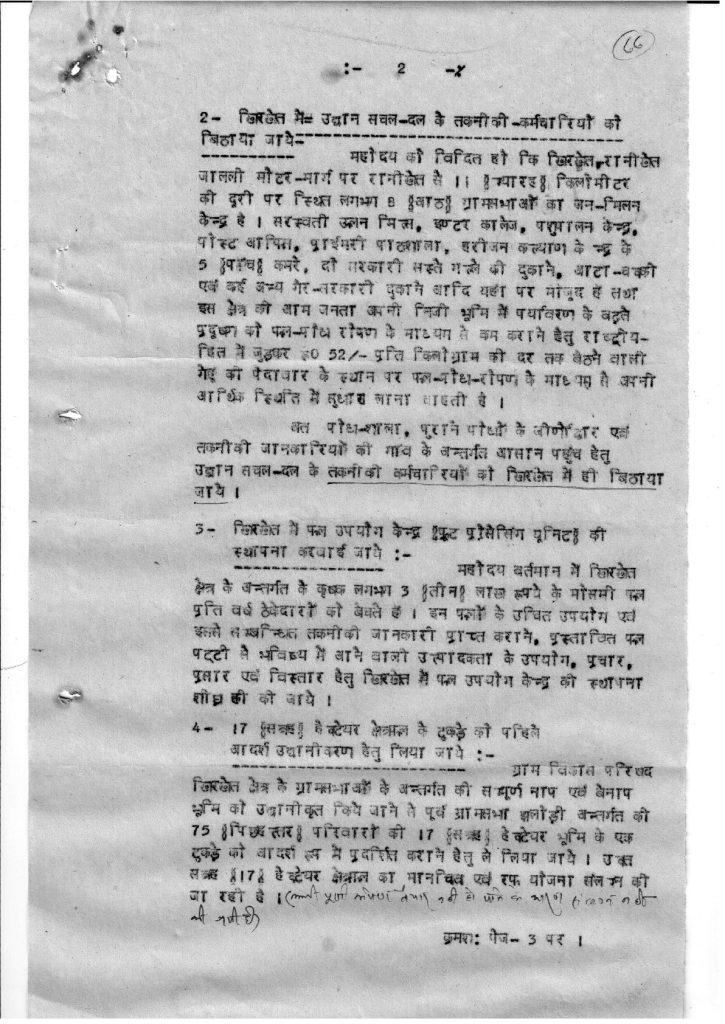 66
:- 2 -:
2- खिरखेत में उद्यान सचल-दल के तकनीकी-कर्मचारियों को
बिठाया जाये-
महोदय को विदित हो कि खिरखेत, रानीखेत
जालली मोटर-मार्ग पर रानीखेत से 11 §ग्यारह§ किलोमीटर
की दूरी पर स्थित लगभग 8 §आठ§ ग्रामसभाओं का जन-मिलन
केन्द्र है । सरस्वती उलन मिल्स, इण्टर कालेज, पशुपालन केन्द्र,
पोस्ट आफिस, प्राईमरी पाठशाला, हरीजन कल्याण केन्द्र के
5 §पांच§ कमरे, दो सरकारी सस्ते गल्ले की दुकाने, आटा-चक्की
एवं कई अन्य गैर-सरकारी दुकाने आदि यहां पर मौजूद हैं तथा
इस क्षेत्र की आम जनता अपनी निजी भूमि में पर्यावरण के बढ़ते
प्रदूषण को फल-पौध रोपण के माध्यम से कम कराने हेतु राष्ट्रीय-
हित में जुड़कर रू0 52/- प्रति किलोग्राम की दर तक बैठने वाली
गेहूं की पैदावार के स्थान पर फल-पौध-रोपण के माध्यम से अपनी
आर्थिक स्थिति में सुधार लाना चाहती है ।
अत पौध-शाला, पुराने पौधों के जीर्णोद्वार एवं
तकनीकी जानकारियों की गांव के अन्तर्गत आसान पहुंच हेतु
उद्यान सचल-दल के तकनीकी कर्मचारियों को खिरखेत में ही बिठाया
जाये ।
3- खिरखेत में फल उपयोग केन्द्र §फ्रूट प्रोसेसिंग यूनिट§ की
स्थापना करवाई जाये :-
महोदय वर्तमान में खिरखेत
क्षेत्र के अन्तर्गत के कृषक लगभग 3 §तीन§ लाख रूपये के मौसमी फल
प्रति वर्ष ठेकेदारों को बेचते हैं । इन फलों के उचित उपयोग एवं
इससे सम्बन्धित तकनीकी जानकारी प्राप्त कराने, प्रस्तावित फल
पट्टी से भविष्य में आने वाली उत्पादकता के उपयोग, प्रचार,
प्रसार एवं विस्तार हेतु खिरखेत में फल उपयोग केन्द्र की स्थापना
शीघ्र ही की जाये ।
4- 17 §सत्रह§ हैक्टेयर क्षेत्रफल के टुकड़े को पहिले
आदर्श उद्यानीकरण हेतु लिया जाये :-
ग्राम विकास परिषद
खिरखेत क्षेत्र के ग्रामसभाओं के अन्तर्गत की सम्पूर्ण नाप एवं बेनाप
भूमि को उद्यानीकृत किये जाने से पूर्व ग्रामसभा अन्तर्गत की
75 §पिछत्तर§ परिवारों की 17 §सत्रह§ हैक्टेयर भूमि के एक
टुकड़े को आदर्श रूप में प्रदर्शित कराने हेतु ले लिया जाये । उक्त
सत्रह §17§ हैक्टेयर क्षेत्रफल का मानचित्र एवं रफ योजना संलग्न की
जा रही है । नहीं हो पाने के कारण संलग्न नहीं
की गयी है)
क्रमश: पेज- 3 पर ।